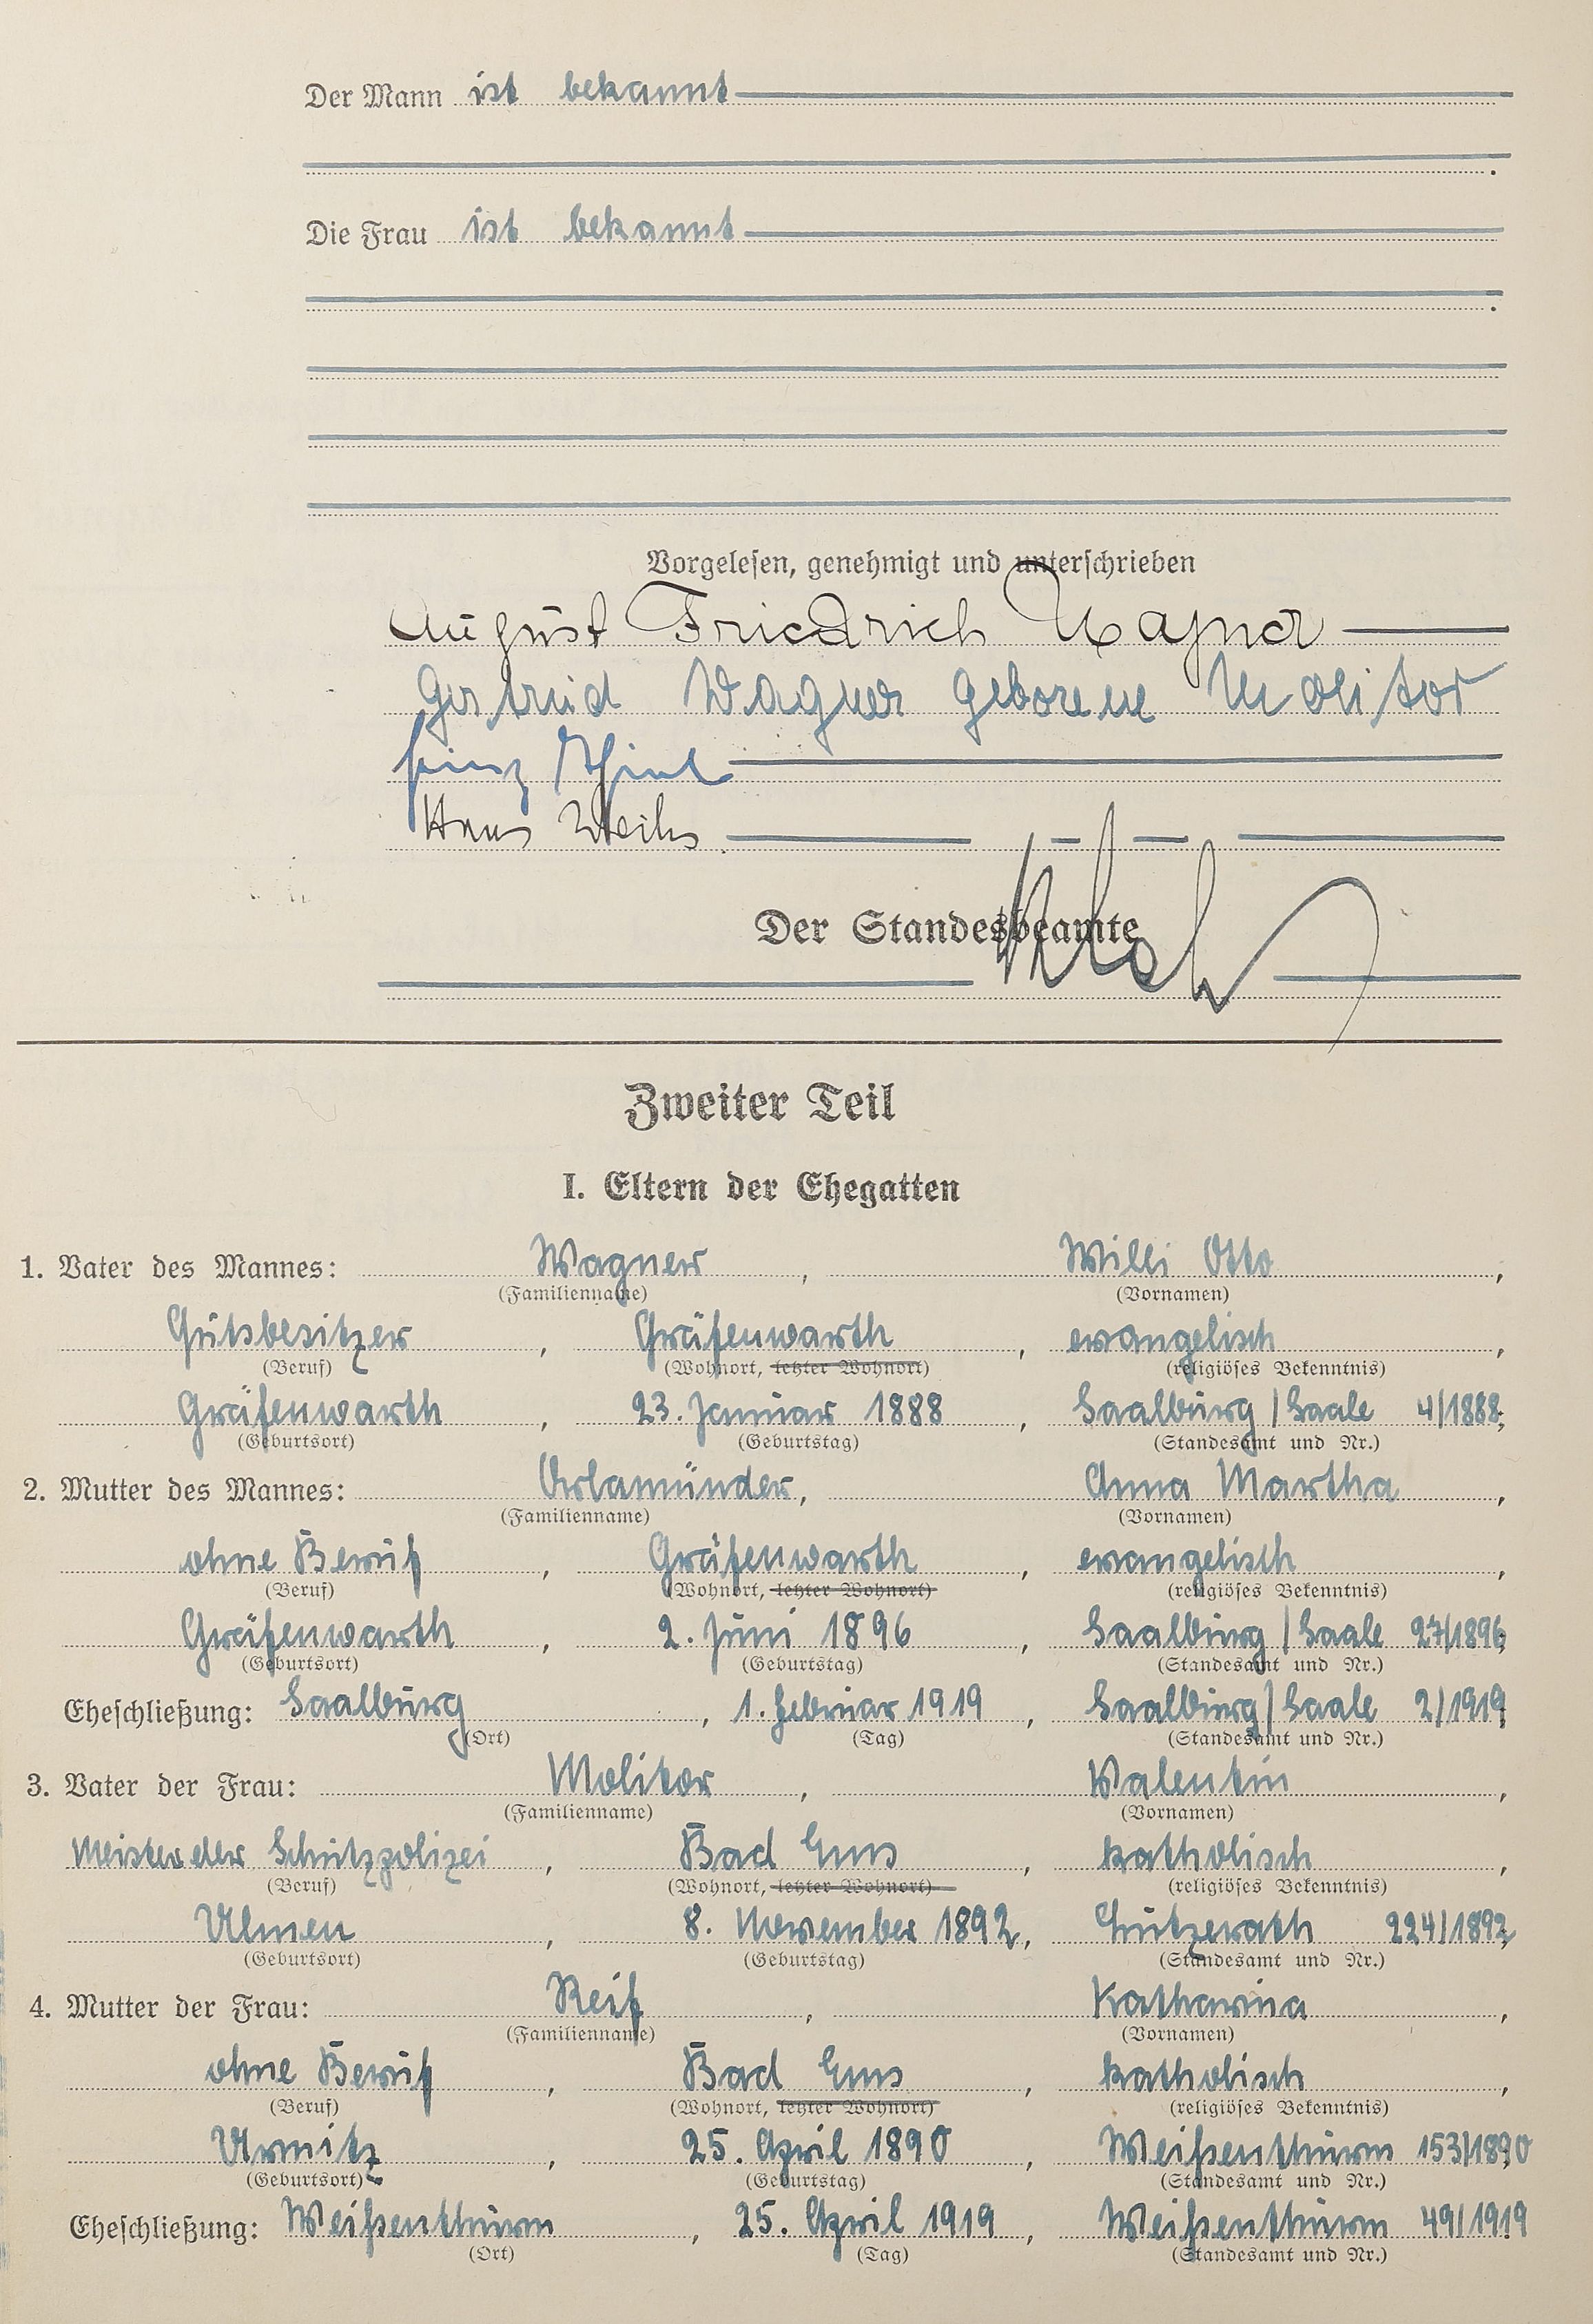 Der Mann ist bekannt
Die Frau ist bekannt
Vorgelesen, genehmigt und unterschrieben
August Friedrich Wagner
Gertrud Wagner geborene Molitor
Heinz
Hans
Der Standesbeamte
Zweiter Teil
I. Eltern der Ehegatten
1. Vater des Mannes: Wagner, Willi Otto,
(Familienname) (Vornamen)
Gutsbesitzer, Gräfenwarth, evangelisch,
(Beruf) (Wohnort, letzter Wohnort) (religiöses Bekenntnis)
Gräfenwarth, 23. Januar 1888, Saalburg/Saale 4/1888,
(Geburtsort) (Geburtstag) (Standesamt und Nr.)
2. Mutter des Mannes: Orlamünder, Anna Martha,
(Familienname) (Vornamen)
ohne Beruf, Gräfenwarth, evangelisch,
(Beruf) (Wohnort, letzter Wohnort) (religiöses Bekenntnis)
Gräfenwarth, 2. Juni 1896, Saalburg/Saale 27/1896,
(Geburtsort) (Geburtstag) (Standesamt und Nr.)
Eheschließung: Saalburg, 1. Februar 1919, Saalburg/Saale 2/1919,
(Ort) (Tag) (Standesamt und Nr.)
3. Vater der Frau: Molitor, Valentin,
(Familienname) (Vornamen)
Meister der Schutzpolizei, Bad Ems, katholisch,
(Beruf) (Wohnort, letzter Wohnort) (religiöses Bekenntnis)
Ulmen, 8. November 1892, Lutzerath 224/1892,
(Geburtsort) (Geburtstag) (Standesamt und Nr.)
4. Mutter der Frau: Reif, Katharina,
(Familienname) (Vornamen)
ohne Beruf, Bad Ems, katholisch,
(Beruf) (Wohnort, letzter Wohnort) (religiöses Bekenntnis)
Urmitz, 25. April 1890, Weißenthurm 153/1890
(Geburtsort) (Geburtstag) (Standesamt und Nr.)
Eheschließung: Weißenthurm, 25. April 1919, Weißenthurm 49/1919
(Ort) (Tag) (Standesamt und Nr.)